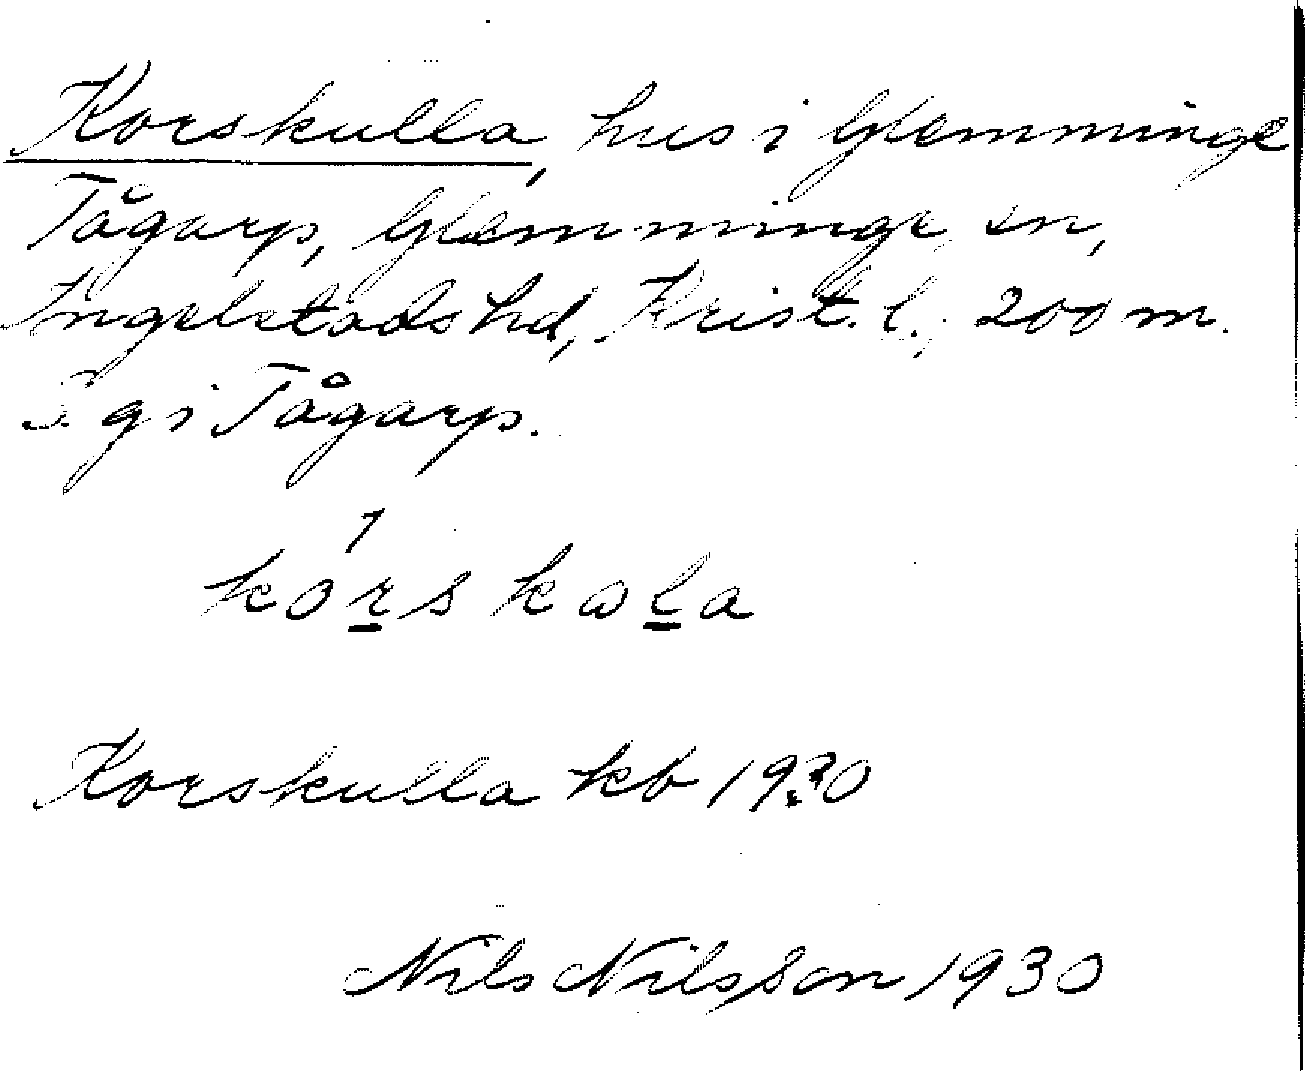 Korskulla, hus i Glemminge
Tågarp, Glemminge sn,
Ingelstads hd, Krist. l., 200 m.
g i Tågarp.
kórskala
Korskulla kb 1930
Nils Nilsson 1930